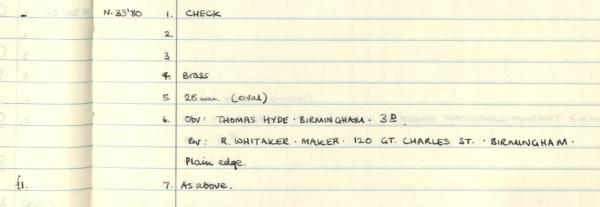 - N.33'80 1. CHECK
2.
3
4. Brass
5. 28mm. (oval)
6. Obv: THOMAS HYDE · BIRMINGHAM · 3D.
Rev: R. WHITAKER · MAKER · 120 GT. CHARLES ST. · BIRMINGHAM ·
Plain edge.
£1. 7. As above.